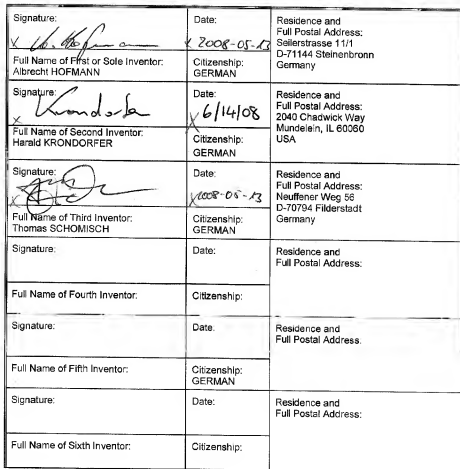 Signature:
Date:
Residence and
Full Postal Address:
Seilerstrasse 11/1
D-71144 Steinenbronn
Germany
x 2008-05-13
Full Name of First or Sole Inventor:
Albrecht HOFMANN
Citizenship:
GERMAN
Signature:
Date:
Residence and
Full Postal Address:
2040 Chadwick Way
Mundelein, IL 60060
USA
x Krondorfer
x 6/14/08
Full Name of Second Inventor:
Harald KRONDORFER
Citizenship:
GERMAN
Signature:
Date:
Residence and
Full Postal Address:
Neuffener Weg 56
D-70794 Filderstadt
Germany
x 2008-05-13
Full Name of Third Inventor:
Thomas SCHOMISCH
Citizenship:
GERMAN
Signature:
Date:
Residence and
Full Postal Address:
Full Name of Fourth Inventor:
Citizenship:
Signature:
Date.
Residence and
Full Postal Address.
Full Name of Fifth Inventor:
Citizenship:
GERMAN
Signature:
Date:
Residence and
Full Postal Address:
Full Name of Sixth Inventor:
Citizenship: